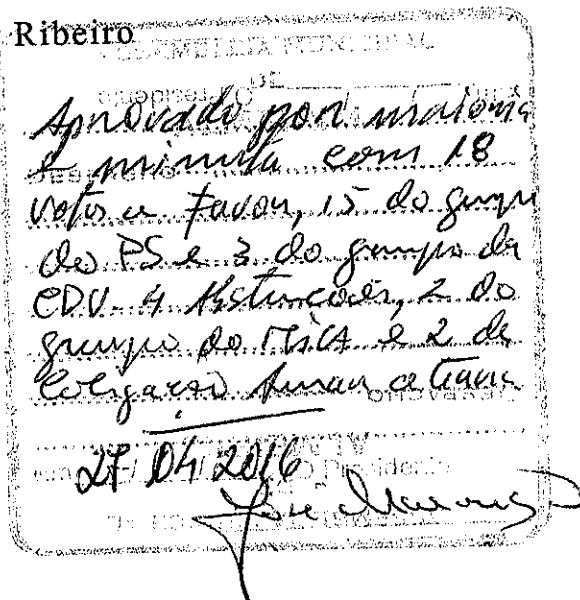 Ribeiro
ASSEMBLEIA MUNICIPAL
DE
Aprovado por maioria
e minuta com 18
votos a Favor, 15 do grupo
do PS e 3 do grupo da
CDU. 4 Abstenções, 2 do
grupo do MICA e 2 da
Coligação Amar a Terra
27/04/2016